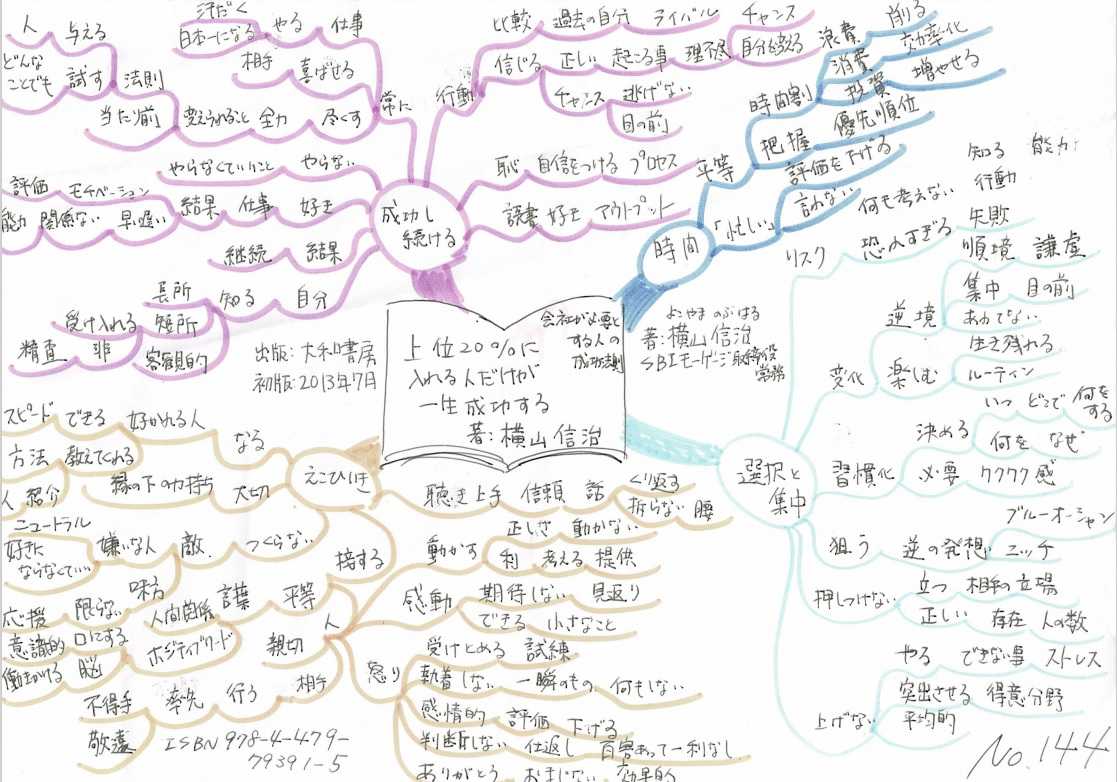 上位20%に
入れる人だけが
一生成功する
著:横山信治
会社が必要と
する人の
成功法則
よこやま のぶはる
著:横山信治
SBIモーゲージ取締役
常務
出版:大和書房
初版:2013年7月
成功し
続ける
行動
比較 過去の自分 ライバル
信じる 正しい 起こる事 理不尽
チャンス
自分を鍛える
チャンス 逃げない
目の前
恥 自信をつける プロセス
読書 好き アウトプット
常に
仕事 やる 日本一になる
汗だく
喜ばせる 相手
尽くす 全力 変えられること
法則 試す どんな
ことでも
与える 人
当たり前
やらない やらなくていいこと
好き 仕事 結果
モチベーション 評価
早い遅い 関係ない 能力
結果 継続
自分 知る
長所
短所 受け入れる
客観的 非 精査
時間
平等
時間割
浪費 削る
消費 効率化
投資 増やせる
把握 優先順位
「忙しい」
評価を下げる
言わない
選択と
集中
リスク 恐れすぎる
何も考えない
知る 能力
行動
失敗
変化 楽しむ
逆境
順境 謙虚
集中 目の前
あわてない
生き残れる
ルーティン
習慣化 必要 ワクワク感
決める
いつ どこで 何を
する
何を なぜ
狙う 逆の発想 ニッチ
ブルーオーシャン
押しつけない
立つ 相手の立場
正しい 存在 人の数
上げない
やる できない事 ストレス
突出させる 得意分野
平均的
えこひいき
なる 好かれる人
できる スピード
教えてくれる 方法
大切 縁の下の力持ち
紹介 人
接する
つくらない 敵 嫌いな人
ニュートラル
好きに
ならなくていい
味方 限らない 応援
人
平等 謙譲 人間関係
親切 ポジティブワード
口にする 意識的
脳 働きかける
相手 行う 率先 不得手
敬遠
聴き上手 信頼 話 くり返す
折らない 腰
動かす
正しさ 動かない
利 考える 提供
感動
期待しない 見返り
できる 小さなこと
怒り
受けとめる 試練
執着しない 一瞬のもの 何もしない
感情的 評価 下げる
判断しない 仕返し 百害あって一利なし
ありがとう おまじない 効果的
ISBN 978-4-479-
79391-5
No.144